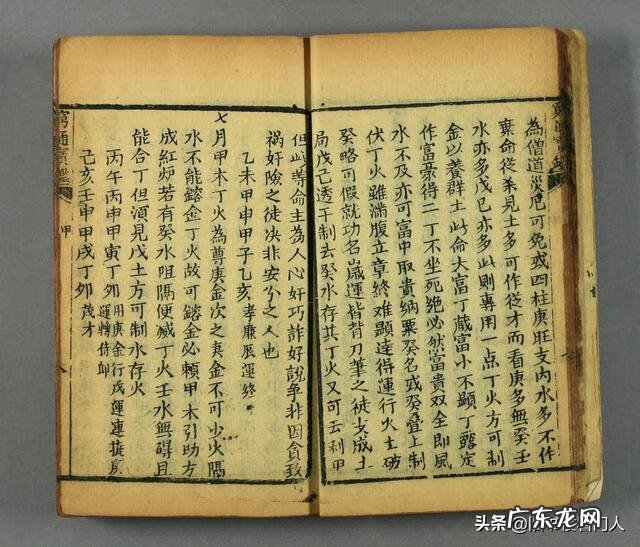 為僧道災厄可免或四柱庚旺支內水多不作
棄命從殺見土多可作從才而看庚多無癸壬
水亦多戊己亦多此則專用一点丁火方可制
金以養群土此命大富丁藏富小不顯丁露定
作富豪得二丁不坐死絕必然富貴双全即風
水不及亦可富中取貴納粟癸名或癸叠上制
伏丁火雖滿腹立章終难顯達得運行火土破
癸略可假就功名歲運皆背刀筆之徒支成土
局戊己透干制去癸水存其丁火又可云利甲
但此等命主為人心奸巧詐好說爭非因貪致
禍奸險之徒決非安分之人也
乙未甲申甲子乙亥 孝廉展運終
七月甲木丁火為尊庚金次之庚金不可少火隔
水不能鎔金丁火故可鎔金必賴甲木引助方
成紅炉若有癸水阻隔便滅丁火壬水無碍且
能合丁但須見戊土方可制水存火
丙午丙申甲寅丁卯 用庚金行戊運連捷
運轉侍郎
己亥壬申甲戌丁卯 茂才
窮通寶鑑
甲
八
头条@
广东龙网